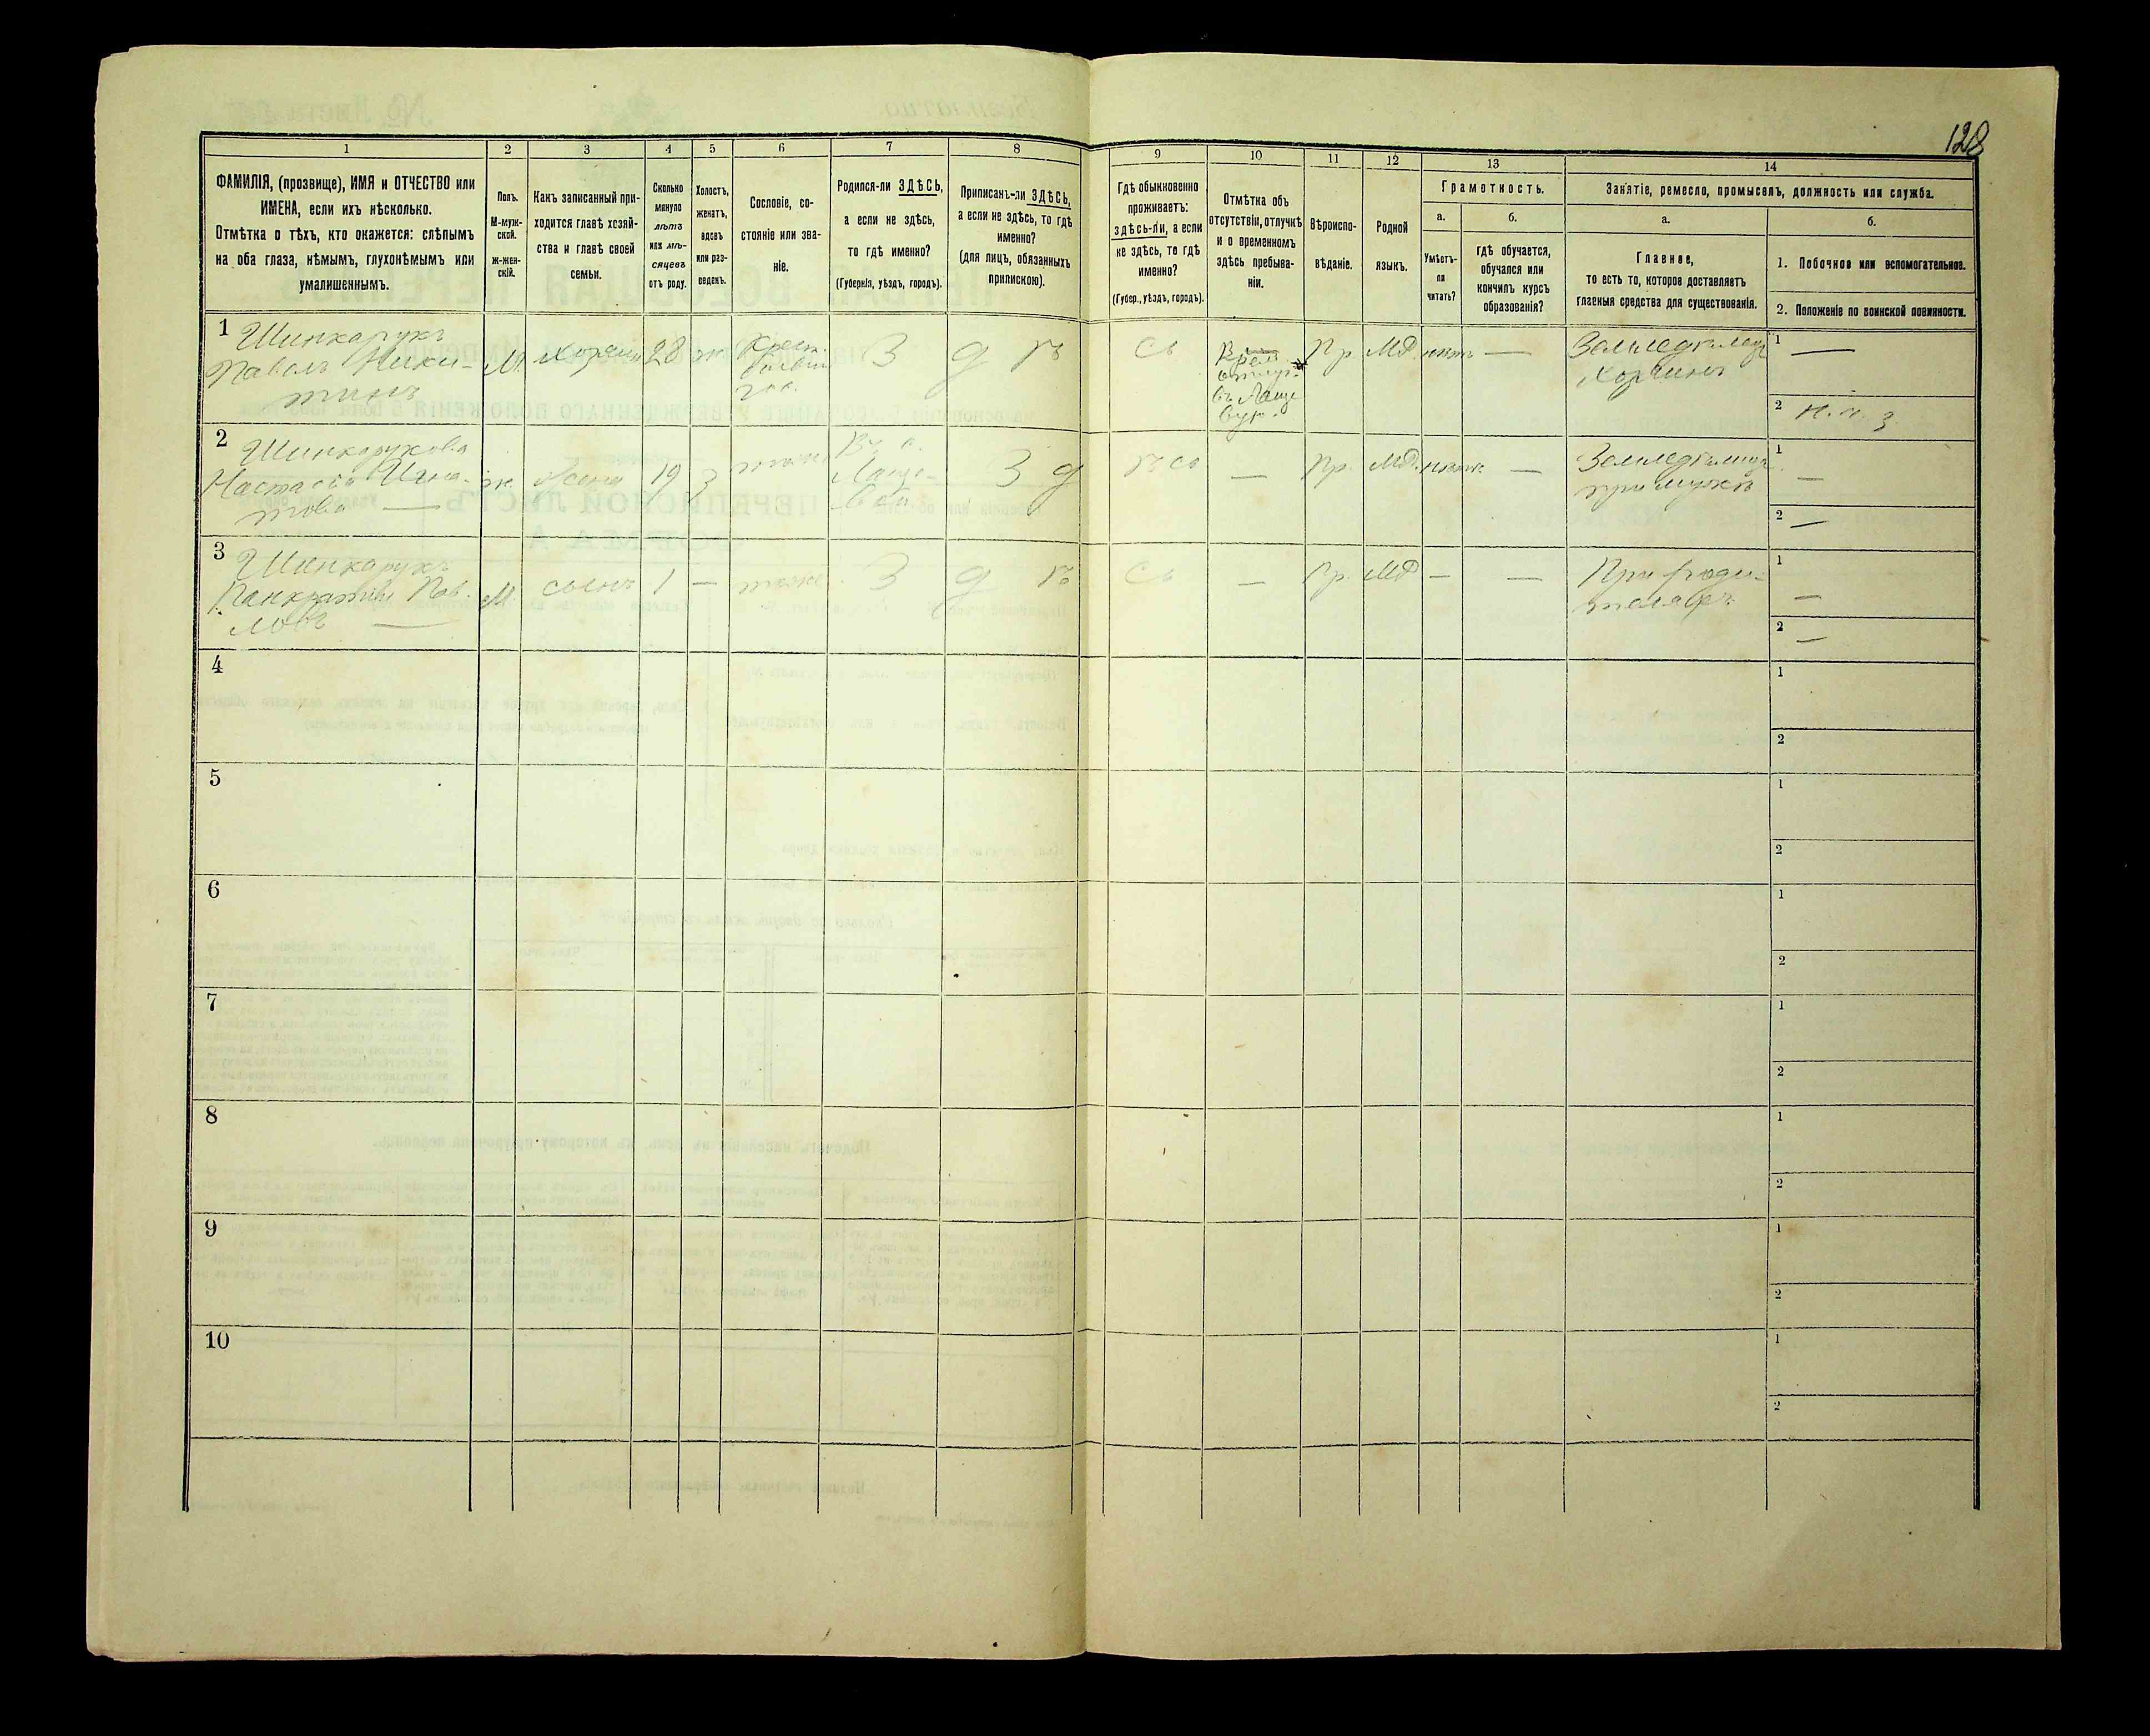 128
1
2
3
4
5
6
7
8
9
10
11
12
13
14
ФАМИЛІЯ, (прозвище), ИМЯ и ОТЧЕСТВО или
ИМЕНА, если ихъ нѣсколько.
Отмѣтка о тѣхъ, кто окажется: слѣпымъ
на оба глаза, нѣмымъ, глухонѣмымъ или
умалишеннымъ.
Полъ.
М-муж-
ской.
ж-жен-
скій.
Какъ записанный при-
ходится главѣ хозяй-
ства и главѣ своей
семьи.
Сколько
минуло
лѣтъ
или мѣ-
сяцевъ
отъ роду.
Холостъ,
женатъ,
вдовъ
или раз-
веденъ.
Сословіе, со-
стояніе или зва-
ніе.
Родился-ли ЗДѢСЬ,
а если не здѣсь,
то гдѣ именно?
(Губернія, уѣздъ, городъ).
Приписанъ-ли ЗДѢСЬ,
а если не здѣсь, то гдѣ
именно?
(для лицъ, обязанныхъ
припискою).
Гдѣ обыкновенно
проживаетъ:
здѣсь-ли, а если
не здѣсь, то гдѣ
именно?
(Губер., уѣздъ, городъ).
Отмѣтка объ
отсутствіи, отлучкѣ
и о временномъ
здѣсь пребыва-
ніи.
Вѣроиспо-
вѣданіе.
Родной
языкъ.
Грамотность.
а.
б.
Умѣетъ-
ли
читать?
гдѣ обучается,
обучался или
кончилъ курсъ
образованія?
Занятіе, ремесло, промыселъ, должность или служба.
а.
б.
Главное,
то есть то, которое доставляетъ
главныя средства для существованія.
1. Побочное или вспомогательное.
2. Положеніе по воинской повинности.
1 Шинкарукъ
Павелъ Ники-
тинъ
М. 28 ж Крест.
З д ѣ
сь
въ
Пр. МР. нѣтъ —
1 —
2 н. ч. з.
2 Шинкарукова
Настасія Игна-
това —
ж. жена 19 З тоже
З д
ѣ сь — Пр. МР. нѣтъ —
при мужѣ
1 —
2 —
3 Шинкарукъ
Панкратій Пав-
ловъ —
М. сынъ 1 — тоже З д ѣ
сь — Пр. МР — —
При роди-
теляхъ
1 —
2 —
4
1
2
5
1
2
6
1
2
7
1
2
8
1
2
9
1
2
10
1
2